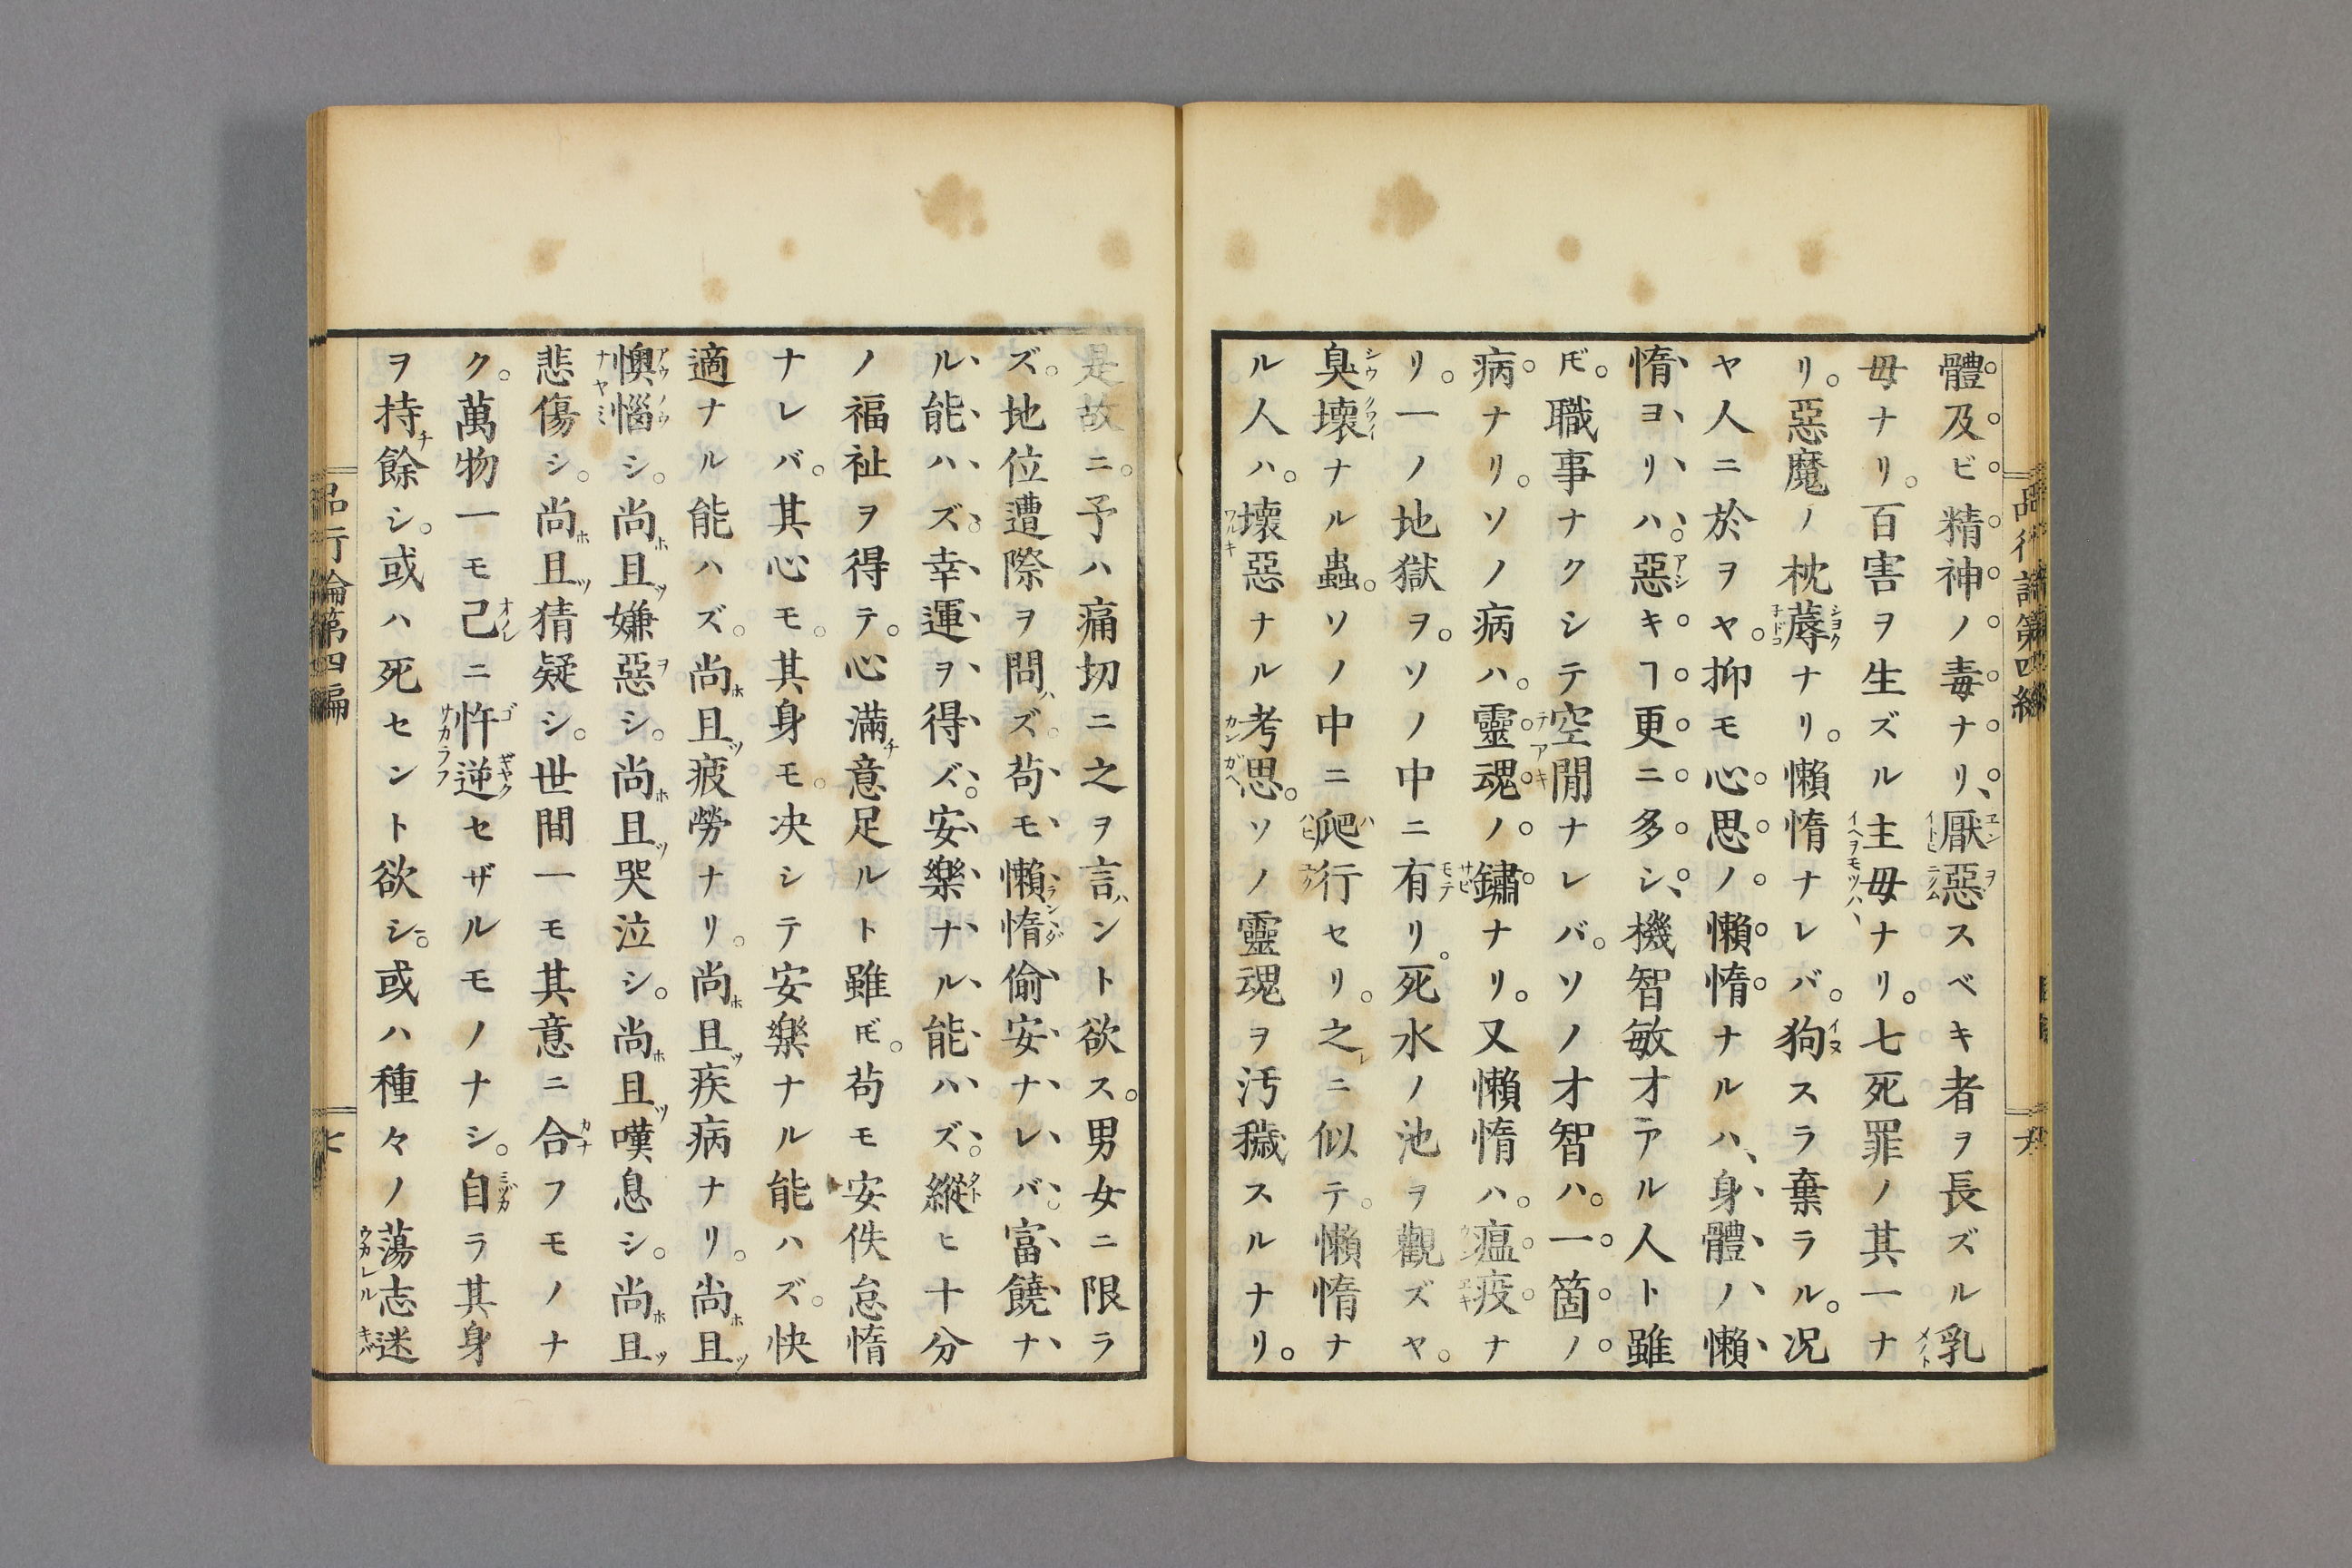 體及ビ精神ノ毒ナリ、厭惡スベキ者ヲ長ズル乳
母ナリ。百害ヲ生ズル主母ナリ。七死罪ノ其一ナ
リ。惡魔ノ枕蓐ナリ。懶惰ナレバ。狗スラ棄ラル。况
ヤ人ニ於ヲヤ。抑モ心思ノ懶惰ナルハ、身體ノ懶
惰ヨリハ。惡キヿ更ニ多シ、機智敏才アル人ト雖
𪜈。職事ナクシテ空閒ナレバ。ソノ才智ハ。一箇ノ
病ナリ。ソノ病ハ。靈魂ノ鏽ナリ。又懶惰ハ。瘟疫ナ
リ。一ノ地獄ヲ。ソノ中ニ有リ。死水ノ池ヲ觀ズヤ。
臭壞ナル蟲。ソノ中ニ爬行セリ。之ニ似テ。懶惰ナ
ル人ハ。壞惡ナル考思。ソノ靈魂ヲ汚穢スルナリ。
品行論第四編
是故ニ。予ハ痛切ニ之ヲ言ハント欲ス。男女ニ限ラ
ズ。地位遭際ヲ問ハズ。苟モ懶惰偷安ナレバ。富饒ナ
ル能ハズ。幸運ヲ得ズ。安樂ナル能ハズ。縱ヒ十分
ノ福祉ヲ得テ。心滿チ意足ルト雖𪜈。苟モ安佚怠惰
ナレバ。其心モ。其身モ。决シテ安樂ナル能ハズ。快
適ナル能ハズ。尚ホ且ツ疲勞ナリ。尚ホ且ツ疾病ナリ。尚ホ且ツ
懊惱シ。尚ホ且ツ嫌惡シ。尚ホ且ツ哭泣シ。尚ホ且ツ嘆息シ。尚ホ且ツ
悲傷シ。尚ホ且ツ猜疑シ。世間一モ其意ニ合フモノナ
ク。萬物一モ己ニ忤逆セザルモノナシ。自ラ其身
ヲ持チ餘シ。或ハ死セント欲シ。或ハ種々ノ蕩志迷
品行論第四編
七